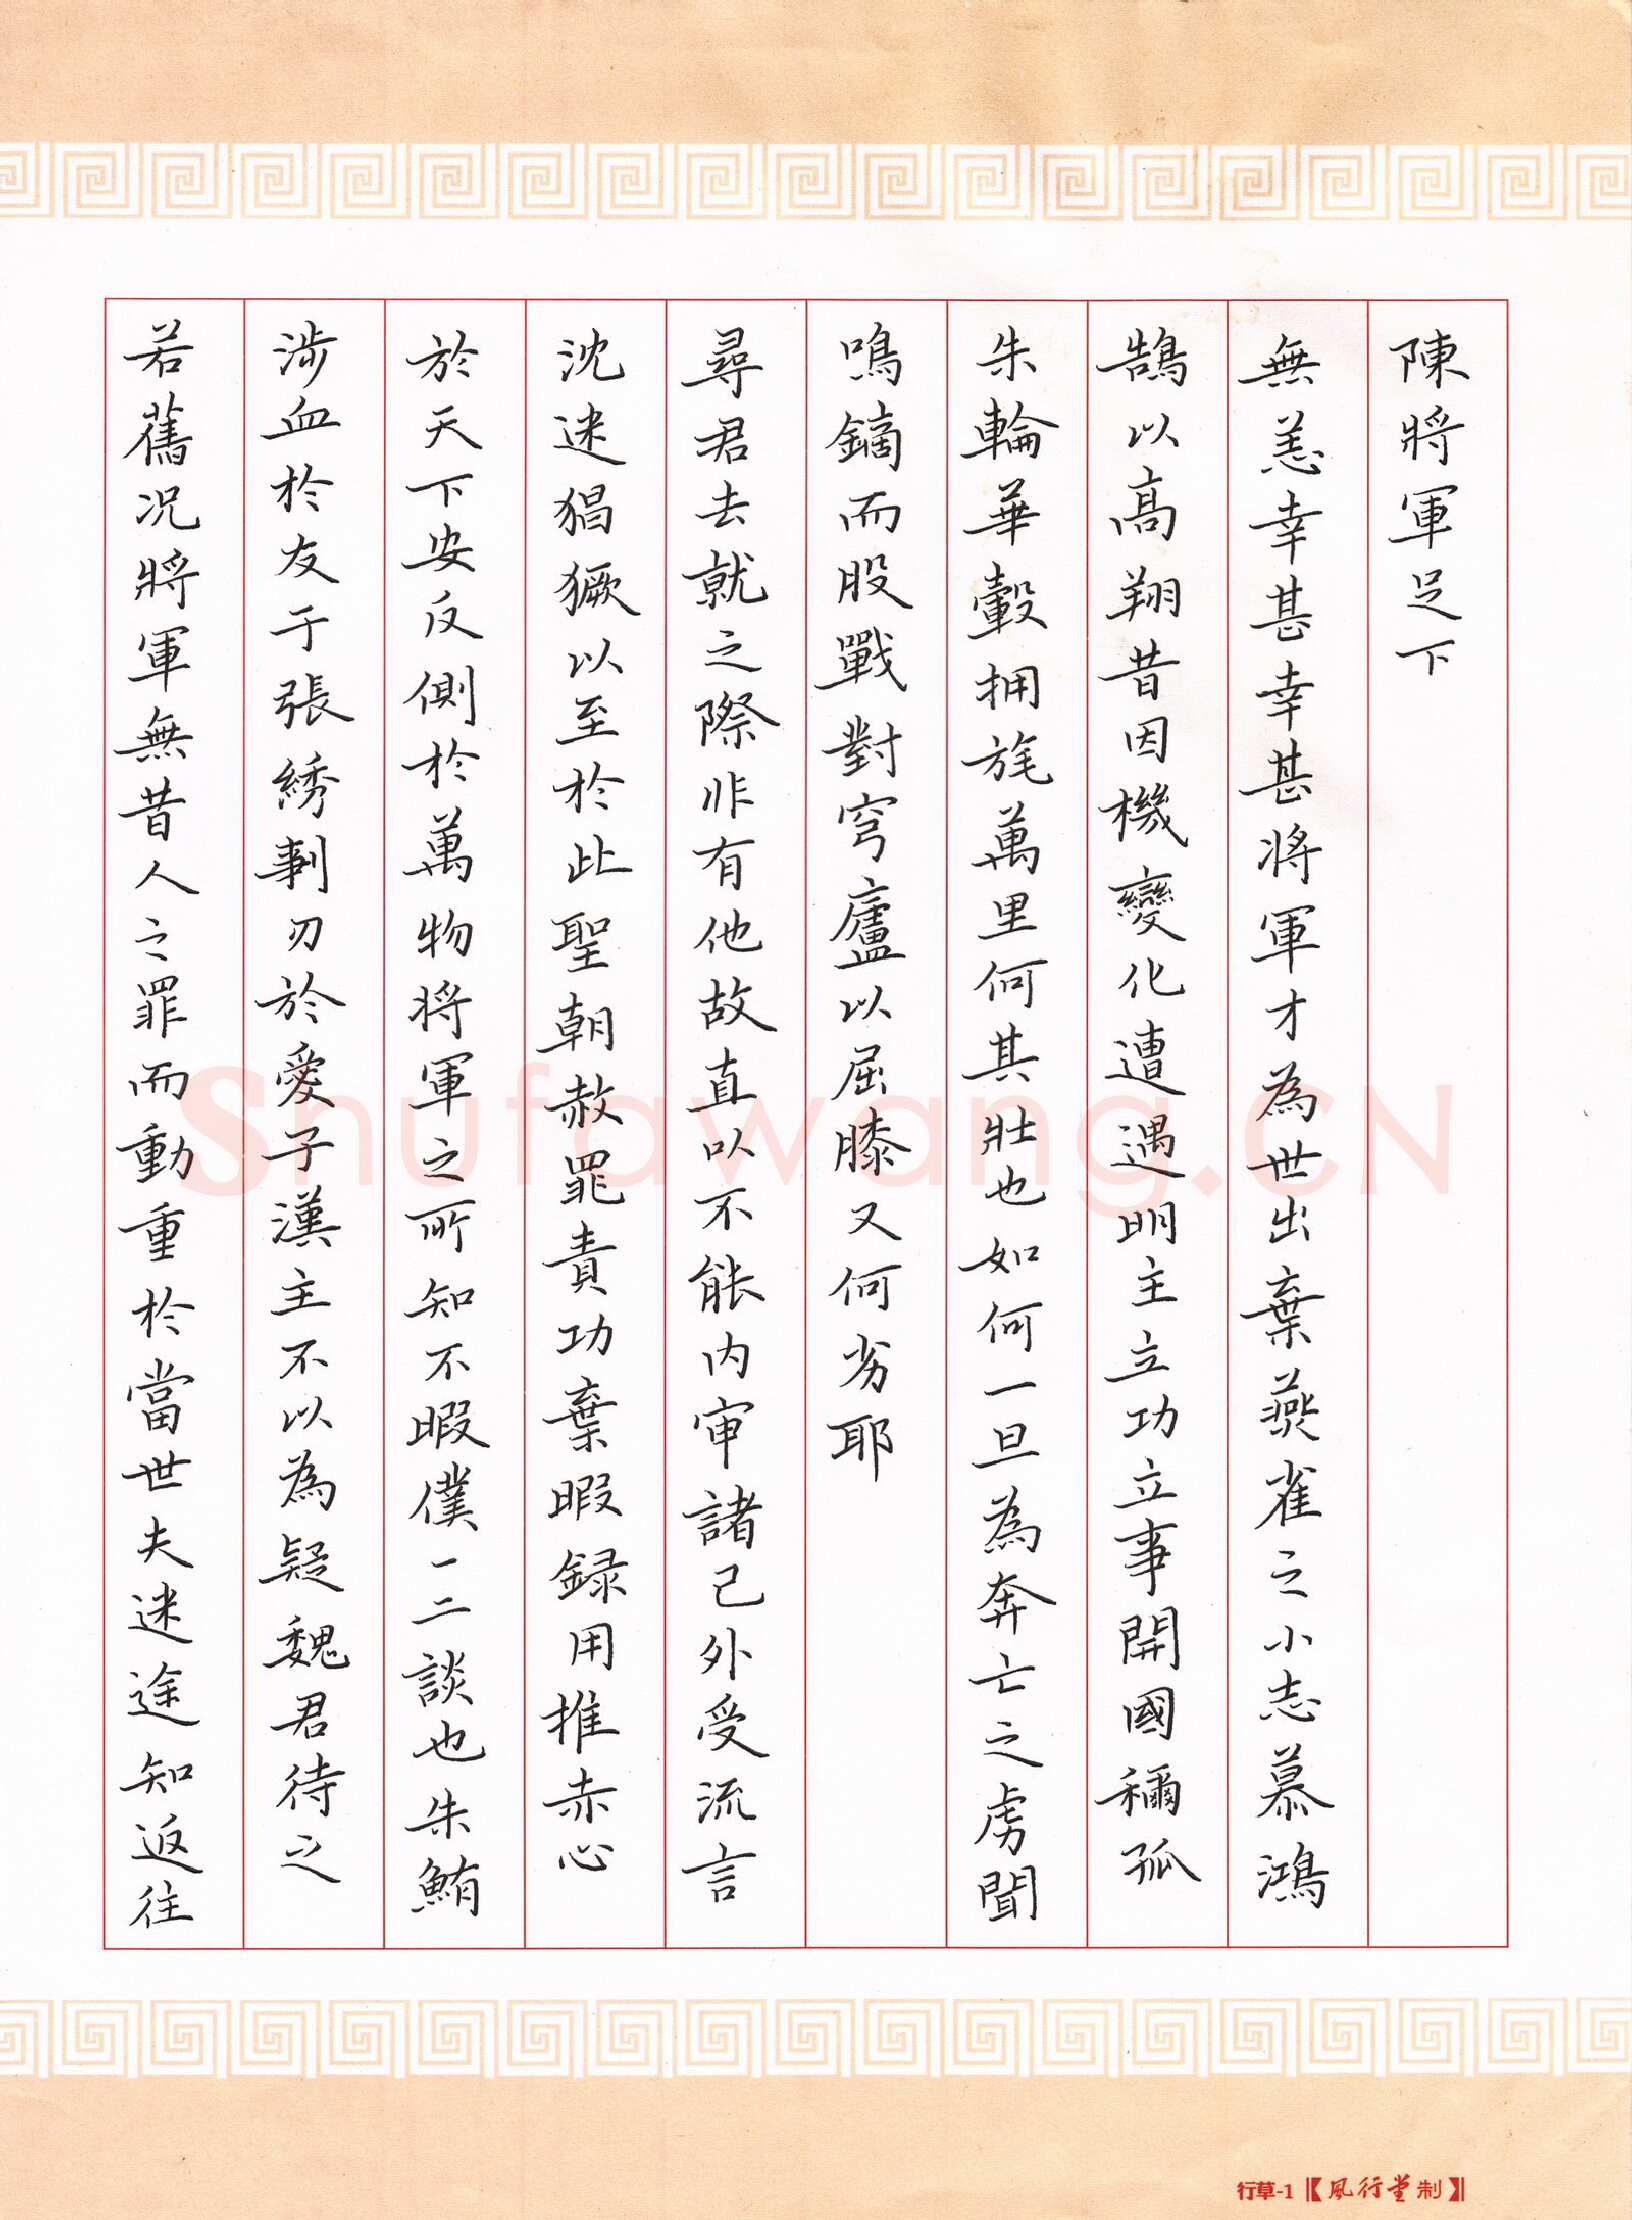 陳將軍足下
無恙幸甚幸甚將軍才為世出棄燕雀之小志慕鴻
鵠以高翔昔因機變化遭遇明主立功立事開國稱孤
朱輪華轂拥旄萬里何其壯也如何一旦為奔亡之虜聞
鳴鏑而股戰對穹廬以屈膝又何劣耶
尋君去就之際非有他故直以不能内审諸己外受流言
沈迷猖獗以至於此聖朝赦罪責功棄暇録用推赤心
於天下安反側於萬物将軍之所知不暇僕一二談也朱鮪
涉血於友于張绣剚刃於愛子漢主不以為疑魏君待之
若舊况將軍無昔人之罪而動重於當世夫迷途知返往
Shufawang.CN
行草-1【風行堂制】